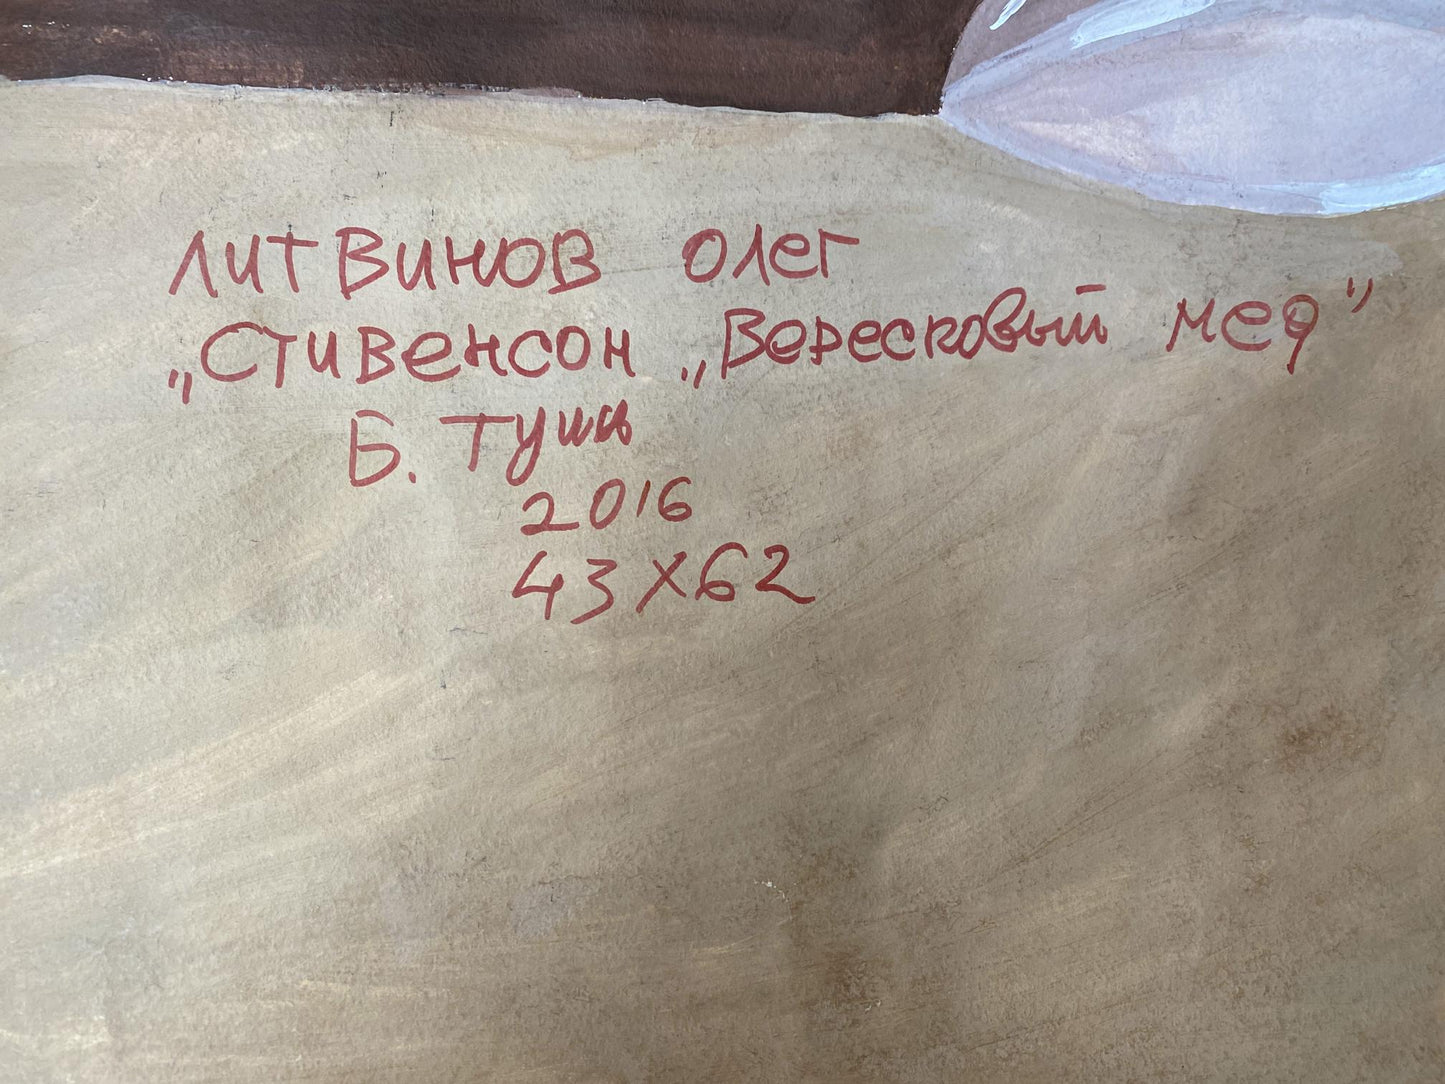 Литвинов Олег
„Стивенсон „Вересковый мед"
Б. Тушь
2016
43х62